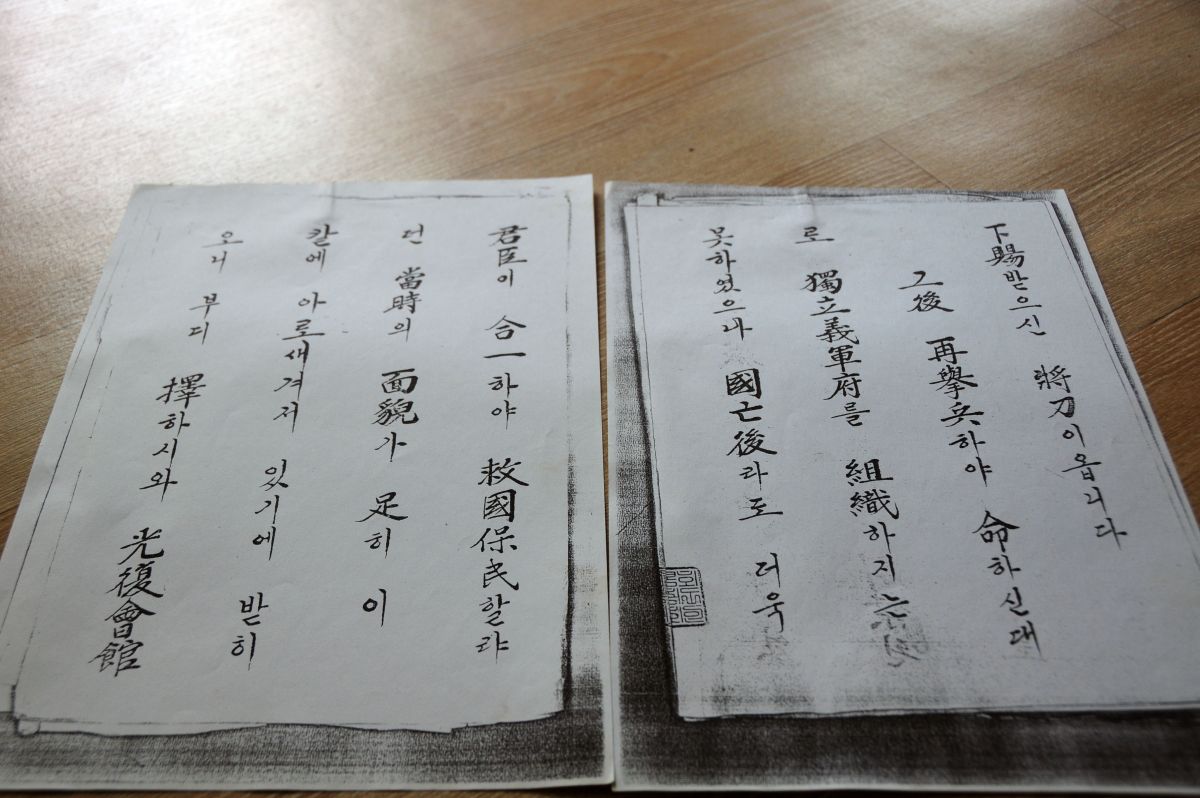 下賜받으신 將刀이옵니다
그後 再擧兵하야 命하신대
로 獨立義軍府를 組織하지는
못하였으나 國亡後라도 더욱
君臣이 合一하야 救國保民할랴
던 當時의 面貌가 足히 이
칼에 아로새겨저 있기에 받히
오니 부디 擇하시와 光復會館